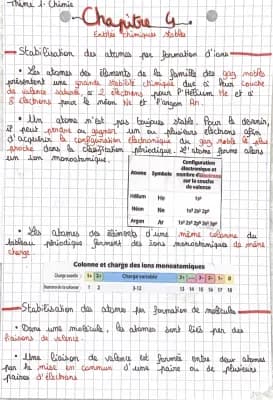 Thème 1 - Chimie
Chapitre 4
Entités chimiques stables
Stabilisation des atomes par formation d'ions
• Les atomes des éléments de la famille des gaz nobles
présentent une grande stabilité chimique due à leur couche
de valence saturée à 2 électrons pour l'Hélium He et à
8 électrons pour le néon Ne et l'argon Ar.
• Un atome n'est pas toujours stable. Pour le devenir,
il peut perdre ou gagner un ou plusieurs électrons afin
d'acquérir la configuration électronique du gaz noble le plus
proche dans la classification périodique. L'atome forme alors
un ion monoatomique.
Atome Symbole Configuration électronique et nombre d'électrons sur la couche de valence
Hélium He 1s²
Néon Ne 1s² 2s² 2p⁶
Argon Ar 1s² 2s² 2p⁶ 3s² 3p⁶
• Les atomes des éléments d'une même colonne du
tableau périodique forment des ions monoatomiques de même
charge.
Colonne et charge des ions monoatomiques
Charge variable
1 2 3-12 13 14 15 16 17 18
Stabilisation des atomes par formation de molécules
• Dans une molécule, les atomes sont liés par des
liaisons de valence.
• Une liaison de valence est formée entre deux atomes
par la mise en commun d'une paire ou de plusieurs
paires d'électrons